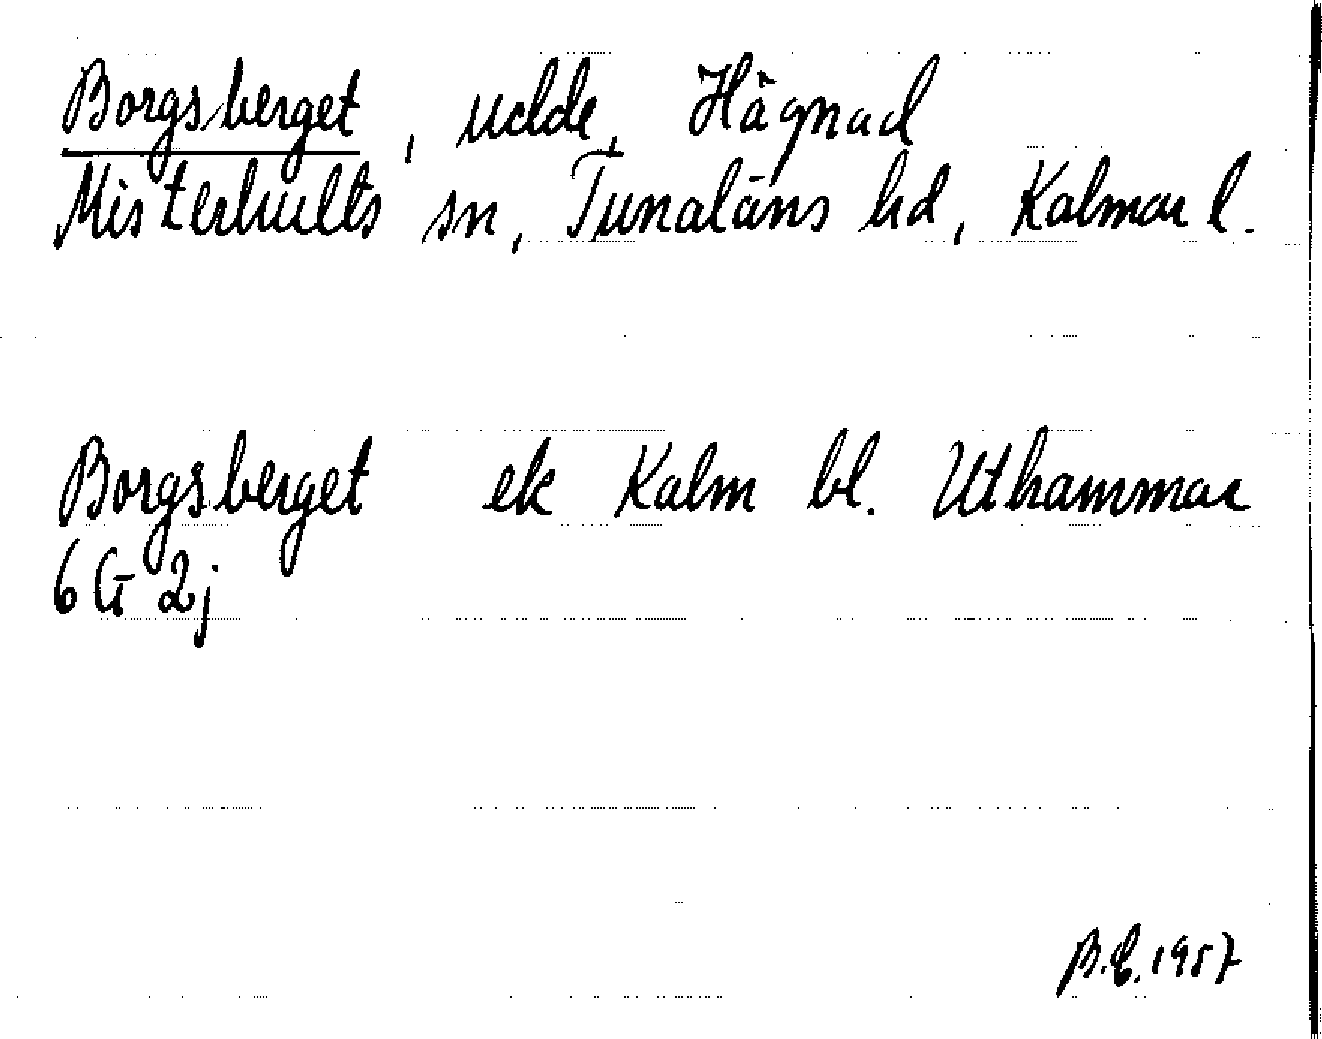 Borgsberget, udde, Hägnad
Misterhults sn, Tunaläns hd, Kalmar l.
Borgsberget ek Kalm bl. Uthammar
6 G 2j
B.E. 1957